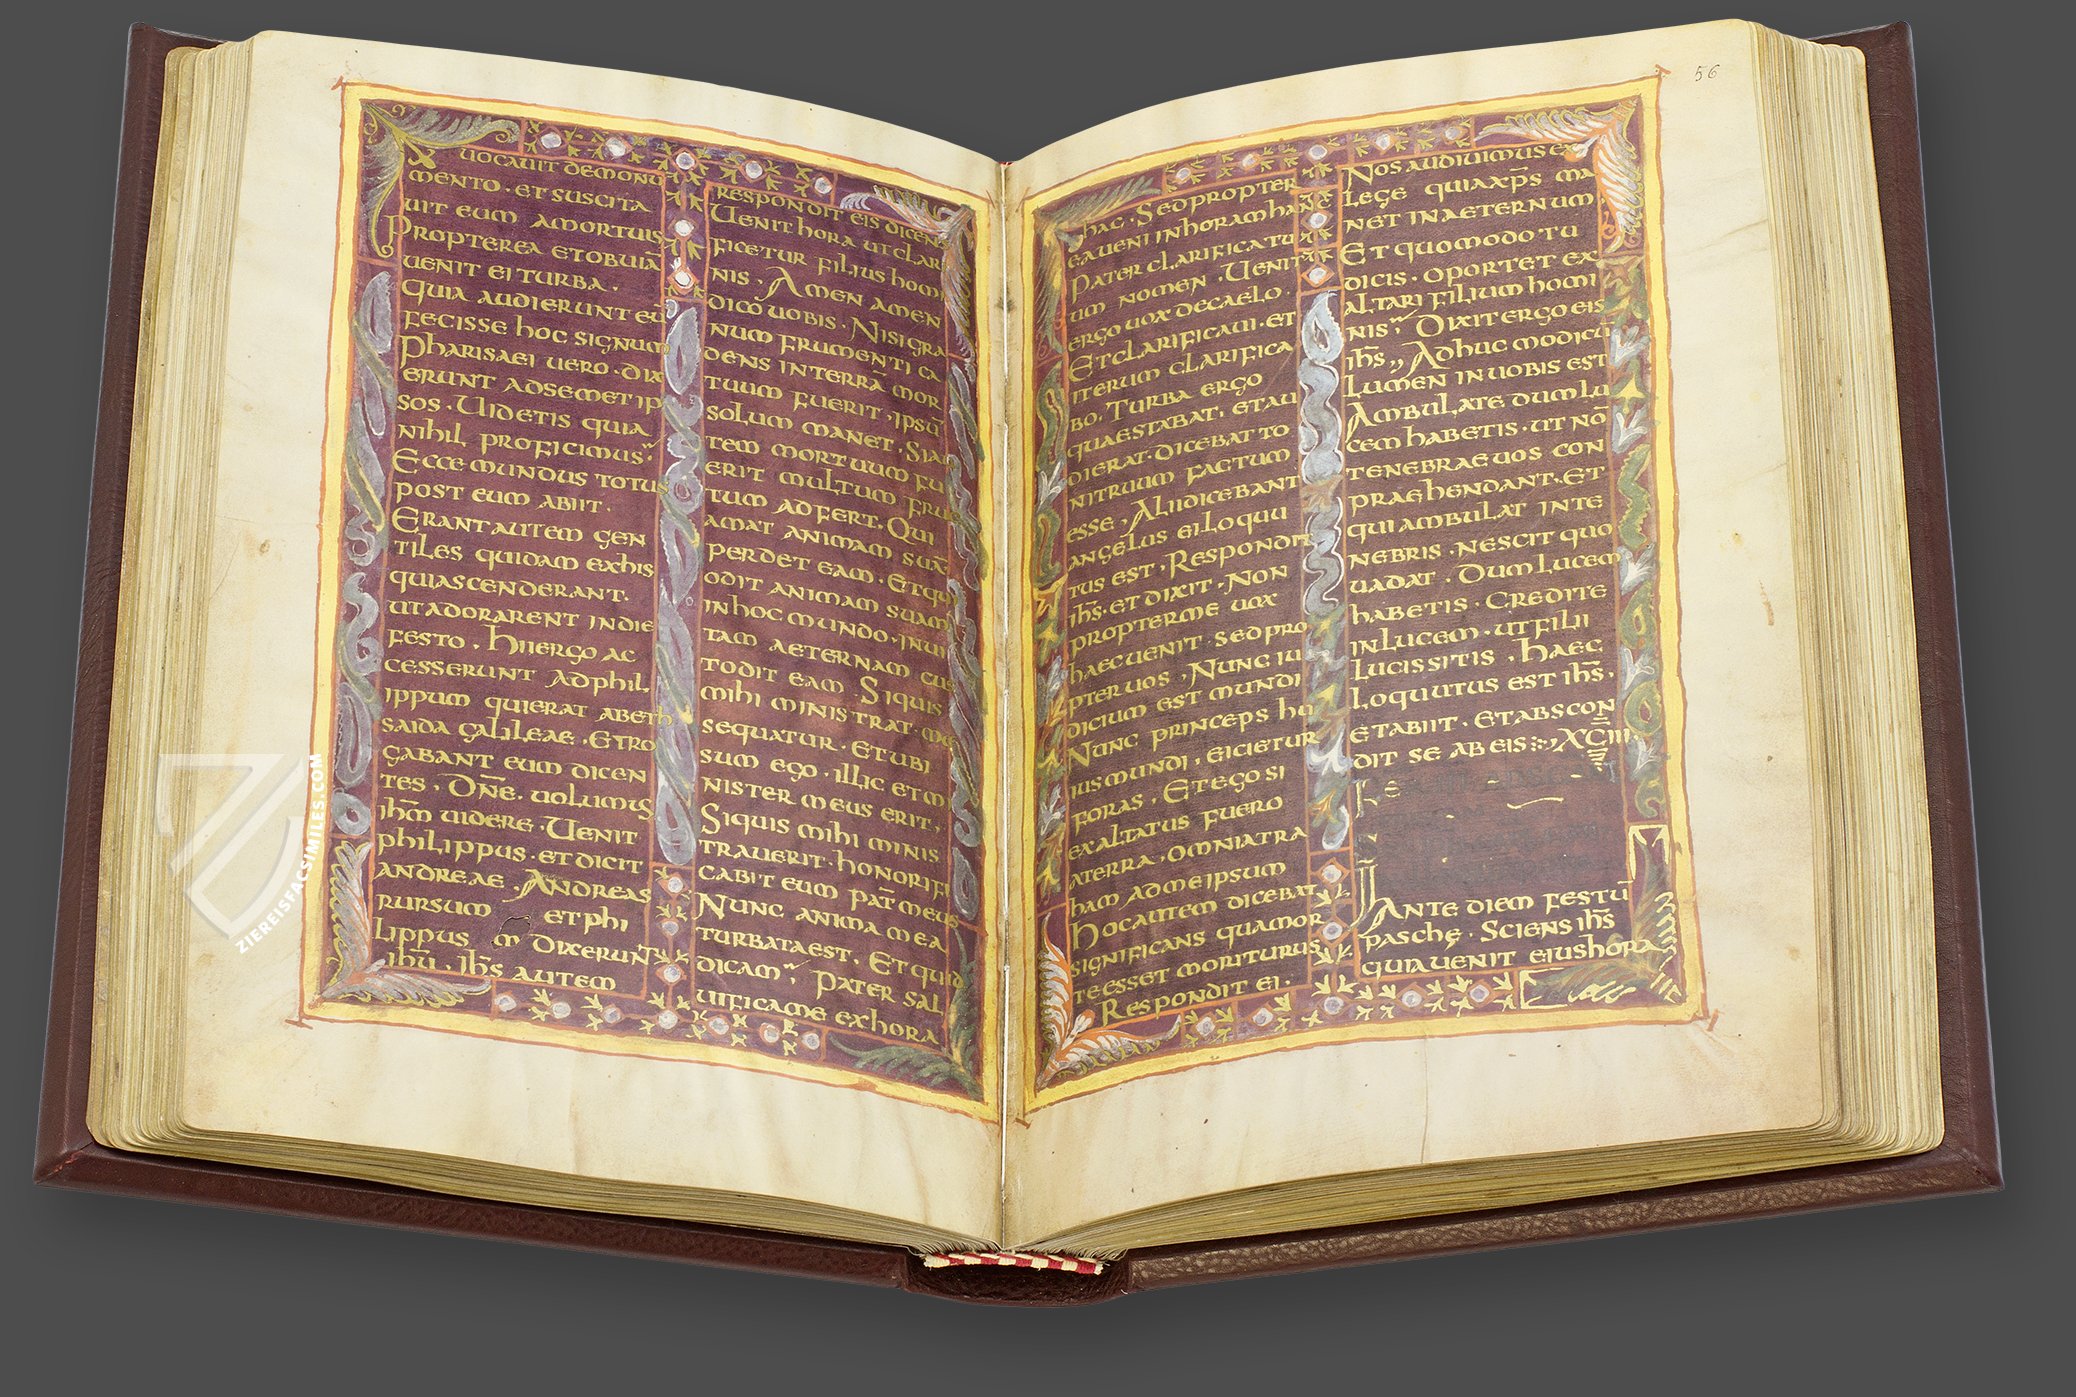 UOCAUIT DE MONU
MENTO · ET SUSCITA
UIT EUM A MORTUIS
PROPTEREA ET OBUIĀ
UENIT EI TURBA ·
QUIA AUDIERUNT EU
FECISSE HOC SIGNUM
PHARISAEI UERO · DIX
ERUNT AD SEMET IP
SOS · UIDETIS QUIA
NIHIL PROFICIMUS
ECCE MUNDUS TOTUS
POST EUM ABIIT ·
ERANT AUTEM GEN
TILES QUIDAM EX HIS
QUI ASCENDERANT ·
UT ADORARENT IN DIE
FESTO · HII ERGO AC
CESSERUNT AD PHIL
IPPUM QUI ERAT A BETH
SAIDA GALILEAE · ET RO
GABANT EUM DICEN
TES · DN̄E · UOLUMUS
IHM̄ UIDERE · UENIT
PHILIPPUS · ET DICIT
ANDREAE · ANDREAS
RURSUM ET PHI
LIPPUS DIXERUNT
IHŪ · IHS̄ AUTEM
RESPONDIT EIS DICENS
UENIT HORA UT CLARI
FICETUR FILIUS HOMI
NIS · AMEN AMEN
DICO UOBIS · NISI GRA
NUM FRUMENTI CA
DENS IN TERRĀ MOR
TUUM FUERIT · IPSŪ
SOLUM MANET · SI AU
TEM MORTUUM FU
ERIT MULTUM FRU
TUM ADFERT · QUI
AMAT ANIMAM SUA
PERDET EAM · ET QUI
ODIT ANIMAM SUAM
IN HOC MUNDO · IN UI
TAM AETERNAM CUS
TODIT EAM · SI QUIS
MIHI MINISTRAT · ME
SEQUATUR · ET UBI
SUM EGO · ILLIC ET MI
NISTER MEUS ERIT ·
SI QUIS MIHI MINIS
TRAUERIT · HONORIFI
CABIT EUM PAT̄ MEUS
NUNC ANIMA MEA
TURBATA EST · ET QUID
DICAM · PATER SAL
UIFICA ME EX HORA
HAC · SED PROPTER
EA UENI IN HORAM HANC
PATER CLARIFICA TU
UM NOMEN · UENIT
ERGO UOX DE CAELO ·
ET CLARIFICAUI · ET
ITERUM CLARIFICA
BO · TURBA ERGO
QUAE STABAT · ET AU
DIERAT · DICEBAT TO
NITRUUM FACTUM
ESSE · ALII DICEBANT
ANGELUS EI LOQUU
TUS EST · RESPONDIT
IHS̄ · ET DIXIT · NON
PROPTER ME UOX
HAEC UENIT SED PRO
PTER UOS · NUNC IU
DICIUM EST MUNDI
NUNC PRINCEPS HU
IUS MUNDI · EICIETUR
FORAS · ET EGO SI
EXALTATUS FUERO
A TERRA · OMNIA TRA
HAM AD ME IPSUM
HOC AUTEM DICEBAT
SIGNIFICANS QUA MOR
TE ESSET MORITURUS
RESPONDIT EI ·
56
NOS AUDIUIMUS EX
LEGE QUIA XPS̄ MA
NET IN AETERNUM
ET QUOMODO TU
DICIS · OPORTET EX
ALTARI FILIUM HOMI
NIS · DIXIT ERGO EIS
IHS̄ ,, ADHUC MODICŪ
LUMEN IN UOBIS EST
AMBULATE DUM LU
CEM HABETIS · UT NŌ
TENEBRAE UOS CON
PRAEHENDANT · ET
QUI AMBULAT IN TE
NEBRIS · NESCIT QUO
UADAT · DUM LUCEM
HABETIS · CREDITE
IN LUCEM · UT FILII
LUCIS SITIS · HAEC
LOQUUTUS EST IHS̄ ·
ET ABIIT · ET ABSCON
DIT SE AB EIS XCIII
ANTE DIEM FESTŪ
PASCHĘ · SCIENS IHS̄
QUIA UENIT EIUS HORA
ZIEREISFACSIMILES.COM